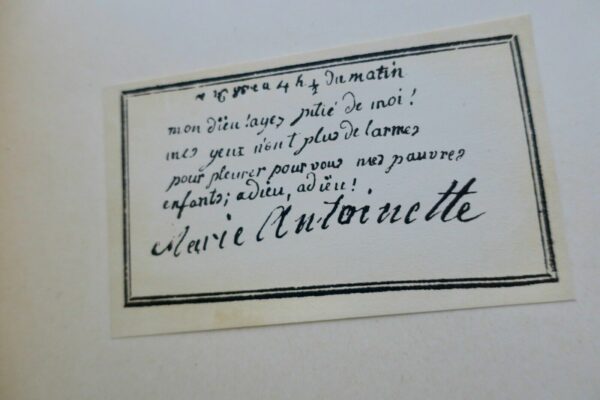 a 4 h ½ du matin
mon dieu! ayez pitié de moi!
mes yeux n'ont plus de larmes
pour pleurer pour vous mes pauvres
enfants; adieu, adieu!
Marie Antoinette